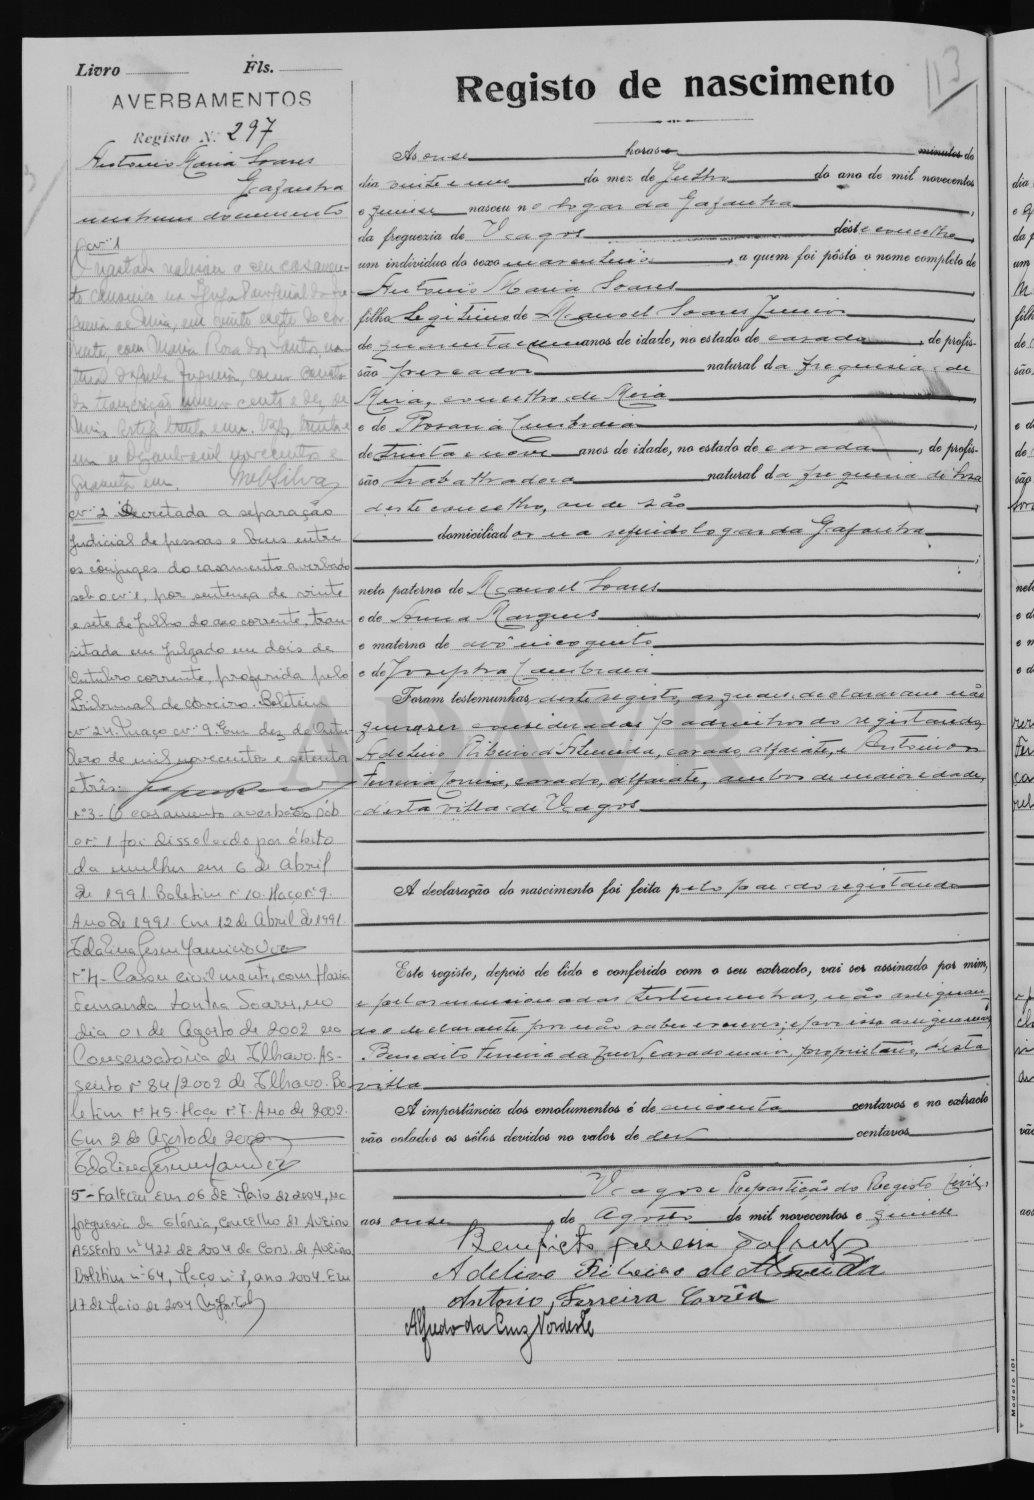 Livro Fls.
AVERBAMENTOS
Registo N.º 297
Antonio Maria Soares
Gafanha
nenhum documento
Nº 1
O registado realisou o seu casamen-
to canonico na Igreja Paroquial da fre-
guesia de Mira, em vinte e sete do cor-
rente, com Maria Rosa dos Santos, na-
tural daquela freguesia, como consta
da transcrição numero cento e dez, de
Mira. trinta e um. Vagos, trinta e
um de Dezembro mil novecentos e
quarenta e um. MelSilva
Nº 2 Decretada a separação
judicial de pessoas e bens entre
os conjuges do casamento averbado
sob o nº 1, por sentença de vinte
e sete de julho do ano corrente, tran-
sitada em julgado em dois de
Outubro corrente, proferida pelo
Tribunal de Aveiro. Boletim
nº 24. Maço nº 9. Em dez de Outu-
bro de mil novecentos e setenta
e três.
Nº 3 - O casamento averbado sob
o nº 1 foi dissolvido por óbito
da mulher em 6 de Abril
de 1991 Boletim nº 10. Maço nº 9.
Ano de 1991. Em 12 de Abril de 1991
Nº 4 - Casou civilmente, com Maria
Fernanda Loutra Soares, no
dia 01 de Agosto de 2002 na
Conservatória de Ílhavo. As-
sento nº 84/2002 de Ílhavo. Bo-
letim nº 45. Maço nº 7. Ano de 2002.
Em 2 de Agosto de 2002
5 - Faleceu em 06 de Maio de 2004, na
freguesia da Glória, concelho de Aveiro
Assento nº 422 de 2004 da Cons. de Aveiro
Boletim nº 64, Maço nº 8, ano 2004. Em
17 de Maio de 2004
Registo de nascimento
113
As onse horas e minutos do
dia vinte e um do mez de Julho do ano de mil novecentos
e quinse nasceu no logar da Gafanha,
da freguezia de Vagos deste concelho,
um individuo do sexo masculino, a quem foi pôsto o nome completo de
Antonio Maria Soares,
filho Legitimo de Manoel Soares Junior,
de quarenta e um anos de idade, no estado de casado, de profis-
são pescador natural da freguesia de
Mira, concelho de Mira,
e de Rosaria Cumbraia,
de trinta e nove anos de idade, no estado de casada, de profis-
são trabalhadora natural da freguesia de Soza
deste concelho, onde são
domiciliados no referido logar da Gafanha
;
neto paterno de Manoel Soares
e de Anna Marques,
e materno de avô incognito
e de Josepha Cumbraia
Foram testemunhas deste registo, as quaes declararam não
querer considerados padrinhos do registando,
Adelino Ribeiro d'Almeida, casado, alfaiate, e Antonio
Ferreira Correia, casado, alfaiate, ambos de maior edade,
desta villa de Vagos
A declaração do nascimento foi feita pelo pae do registando
Este registo, depois de lido e conferido com o seu extracto, vai ser assinado por mim,
e pelas mencionadas testemunhas, não assignan-
do o declarante por não saber escrever; e por isso assigna
Benedito Ferreira da Cruz, casado maior, proprietario, desta
villa
A importância dos emolumentos é de cincoenta centavos e no extracto
vão colados os sêlos devidos no valor de dez centavos
Vagos e Repartição do Registo Civil,
aos onse de Agosto de mil novecentos e quinse
Benedicto Ferreira da Cruz
Adelino Ribeiro de Almeida
Antonio Ferreira Corrêa
Alfredo da Cruz Nordeste
Modelo 101